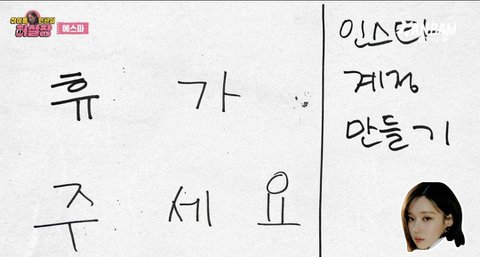 에스파
휴 가
주 세 요
인스타
계정
만들기